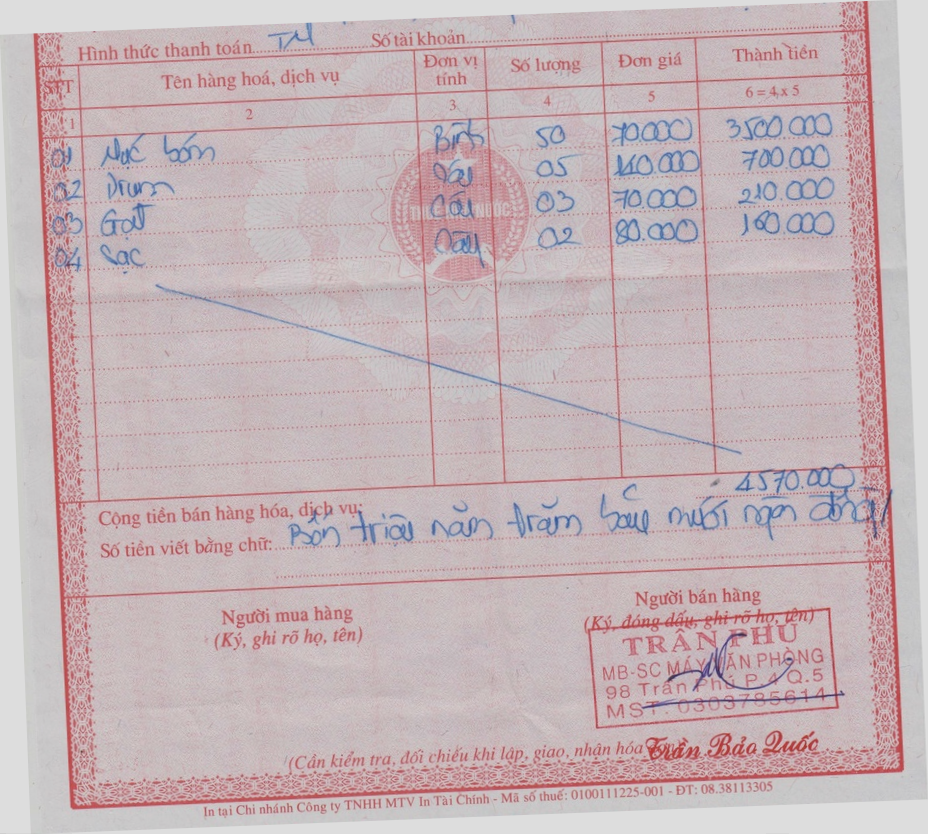 Hình thức thanh toán TM Số tài khoản
STT Tên hàng hoá, dịch vụ Đơn vị tính Số lượng Đơn giá Thành tiền
1 2 3 4 5 6 = 4 x 5
01 Mực bơm Bình 50 70.000 3500.000
02 Drum Cây 05 140.000 700.000
03 Gạt Cây 03 70.000 210.000
04 Sạc Cây 02 80.000 160.000
Cộng tiền bán hàng hóa, dịch vụ: 4570.000
Số tiền viết bằng chữ: Bốn triệu năm trăm bảy mươi ngàn đồng
Người mua hàng Người bán hàng
(Ký, ghi rõ họ, tên) (Ký, đóng dấu, ghi rõ họ, tên)
TRẦN PHÚ
MB-SC MÁY VĂN PHÒNG
98 Trần Phú P.4 Q.5
MST: 0303785614
(Cần kiểm tra, đối chiếu khi lập, giao, nhận hóa
Trần Bảo Quốc
In tại Chi nhánh Công ty TNHH MTV In Tài Chính - Mã số thuế: 0100111225-001 - ĐT: 08.38113305